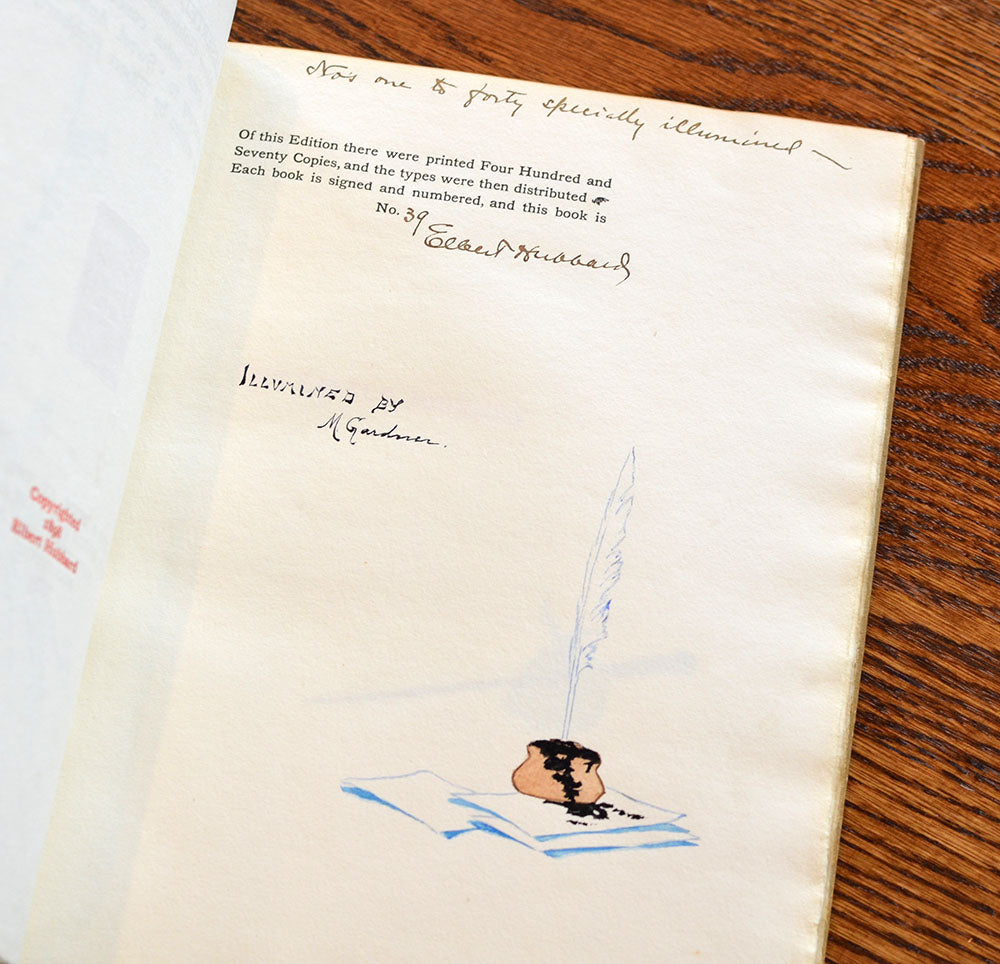 No's one to forty specially illumined —
Of this Edition there were printed Four Hundred and
Seventy Copies, and the types were then distributed
Each book is signed and numbered, and this book is
No. 39
Elbert Hubbard
ILLVMINED BY
M Gardner.
Copyrighted
Elbert Hubbard